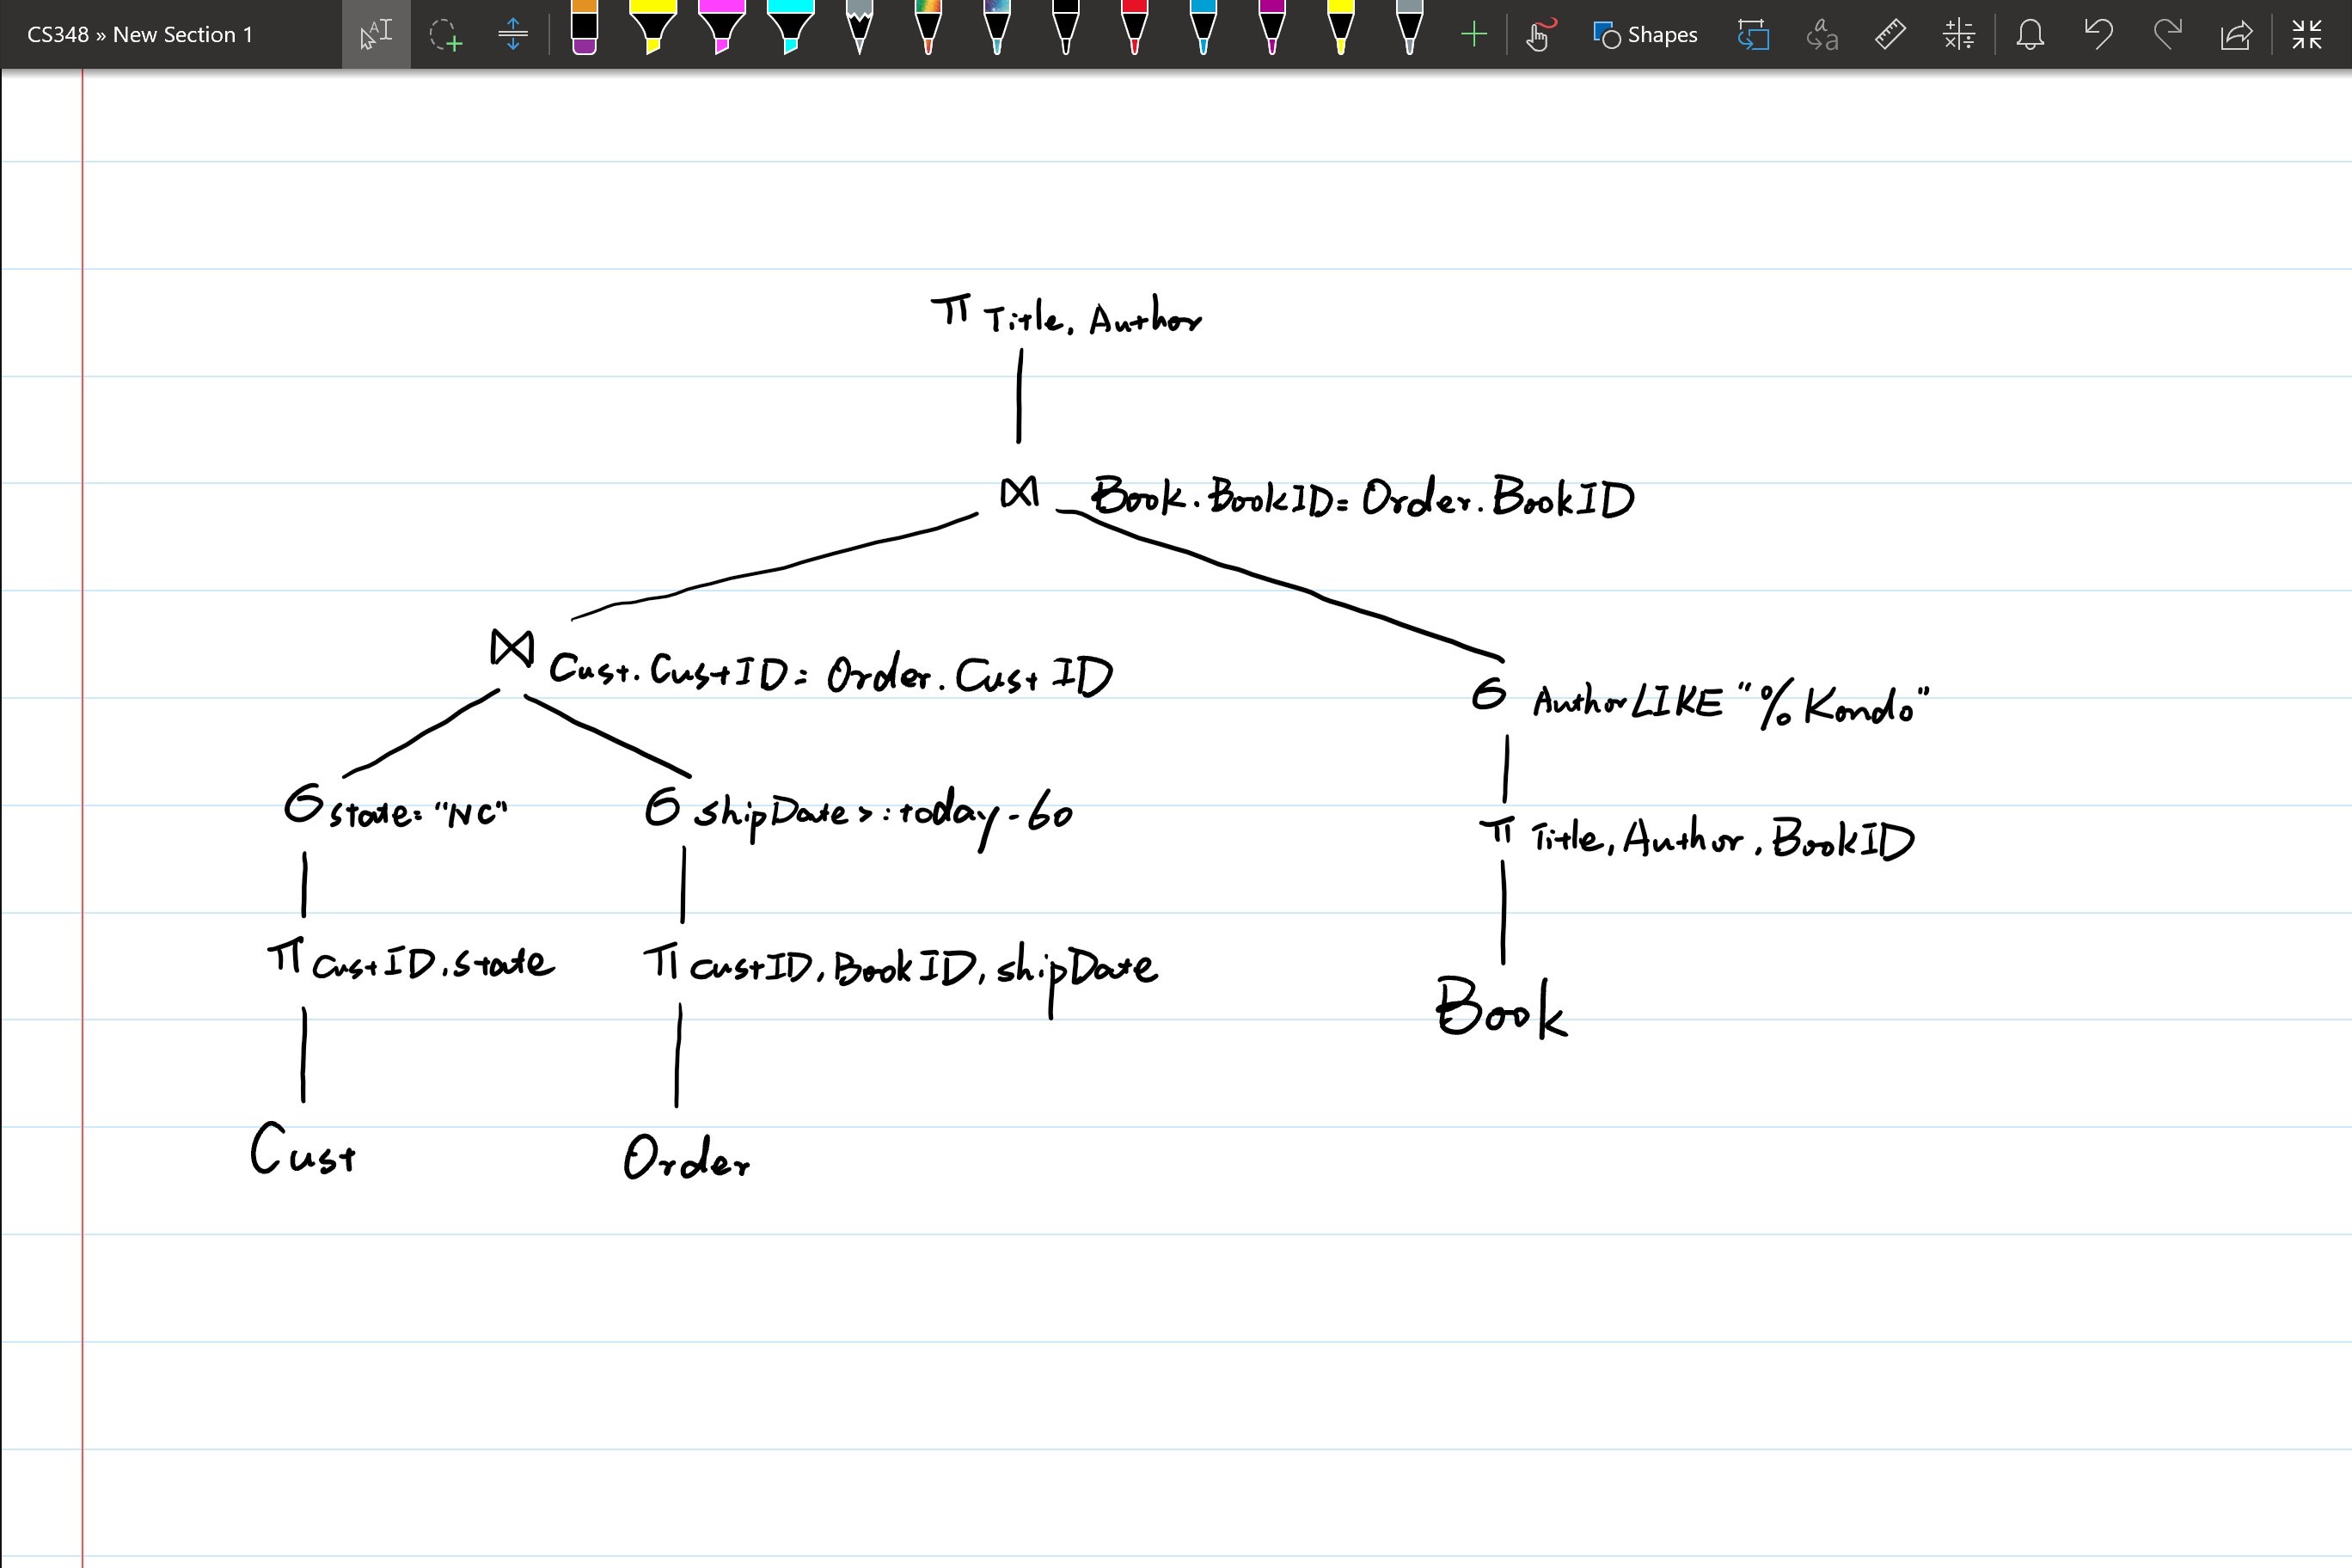 CS348 » New Section 1
Shapes
π Title, Author
⋈ Book.BookID = Order.BookID
⋈ Cust.CustID = Order.CustID
σ Author LIKE "%Kondo"
σ state = "NC"
σ shipDate >= today - 60
π Title, Author, BookID
π CustID, state
π CustID, BookID, shipDate
Book
Cust
Order